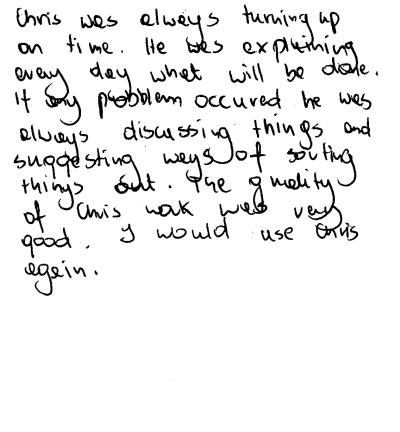 Chris was always turning up
on time. He was explaining
every day what will be done.
If any problem occured he was
always discussing things and
suggesting ways of sorting
things out. The quality
of Chris work was very
good. I would use Chris
again.